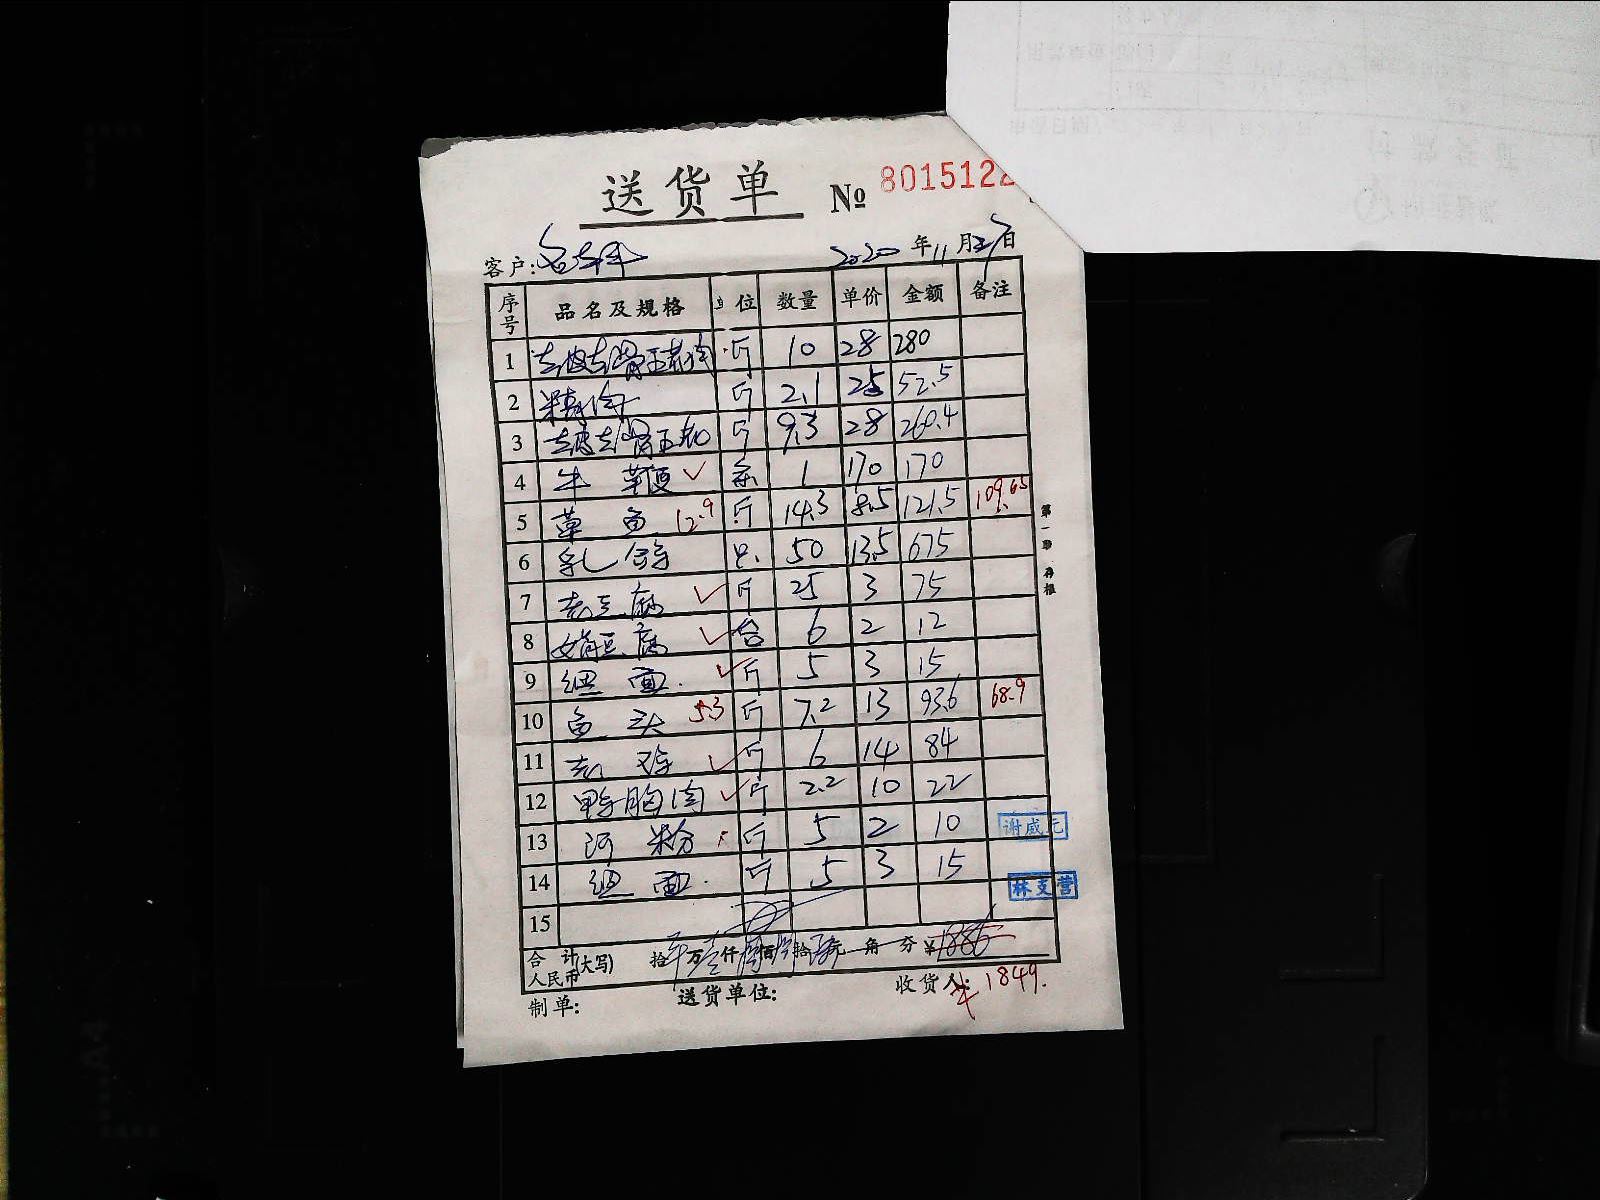 送货单 № 8015122
客户: 2020年11月27日
序号 品名及规格 单位 数量 单价 金额 备注
1 去皮去骨五花肉 斤 10 28 280
2 精肉 斤 2.1 25 52.5
3 去皮去骨五花 斤 9.3 28 260.4
4 牛鞭 ✓ 条 1 170 170
5 草鱼 12.9 斤 14.3 8.5 121.5 109.65
6 乳鸽 只 50 13.5 675
7 老豆腐 ✓ 斤 25 3 75
8 嫩豆腐 ✓ 合 6 2 12
9 细面 ✓ 斤 5 3 15
10 鱼头 5.3 斤 7.2 13 93.6 68.9
11 老鸡 ✓ 斤 6 14 84
12 鸭胸肉 ✓ 斤 2.2 10 22
13 河粉 斤 5 2 10
谢威元
14 细面 斤 5 3 15
林支营
15
合计人民币(大写) 拾 万 仟 佰 拾 元 角 分 ¥1886
制单: 送货单位: 收货人: 1849.
第一联 存根